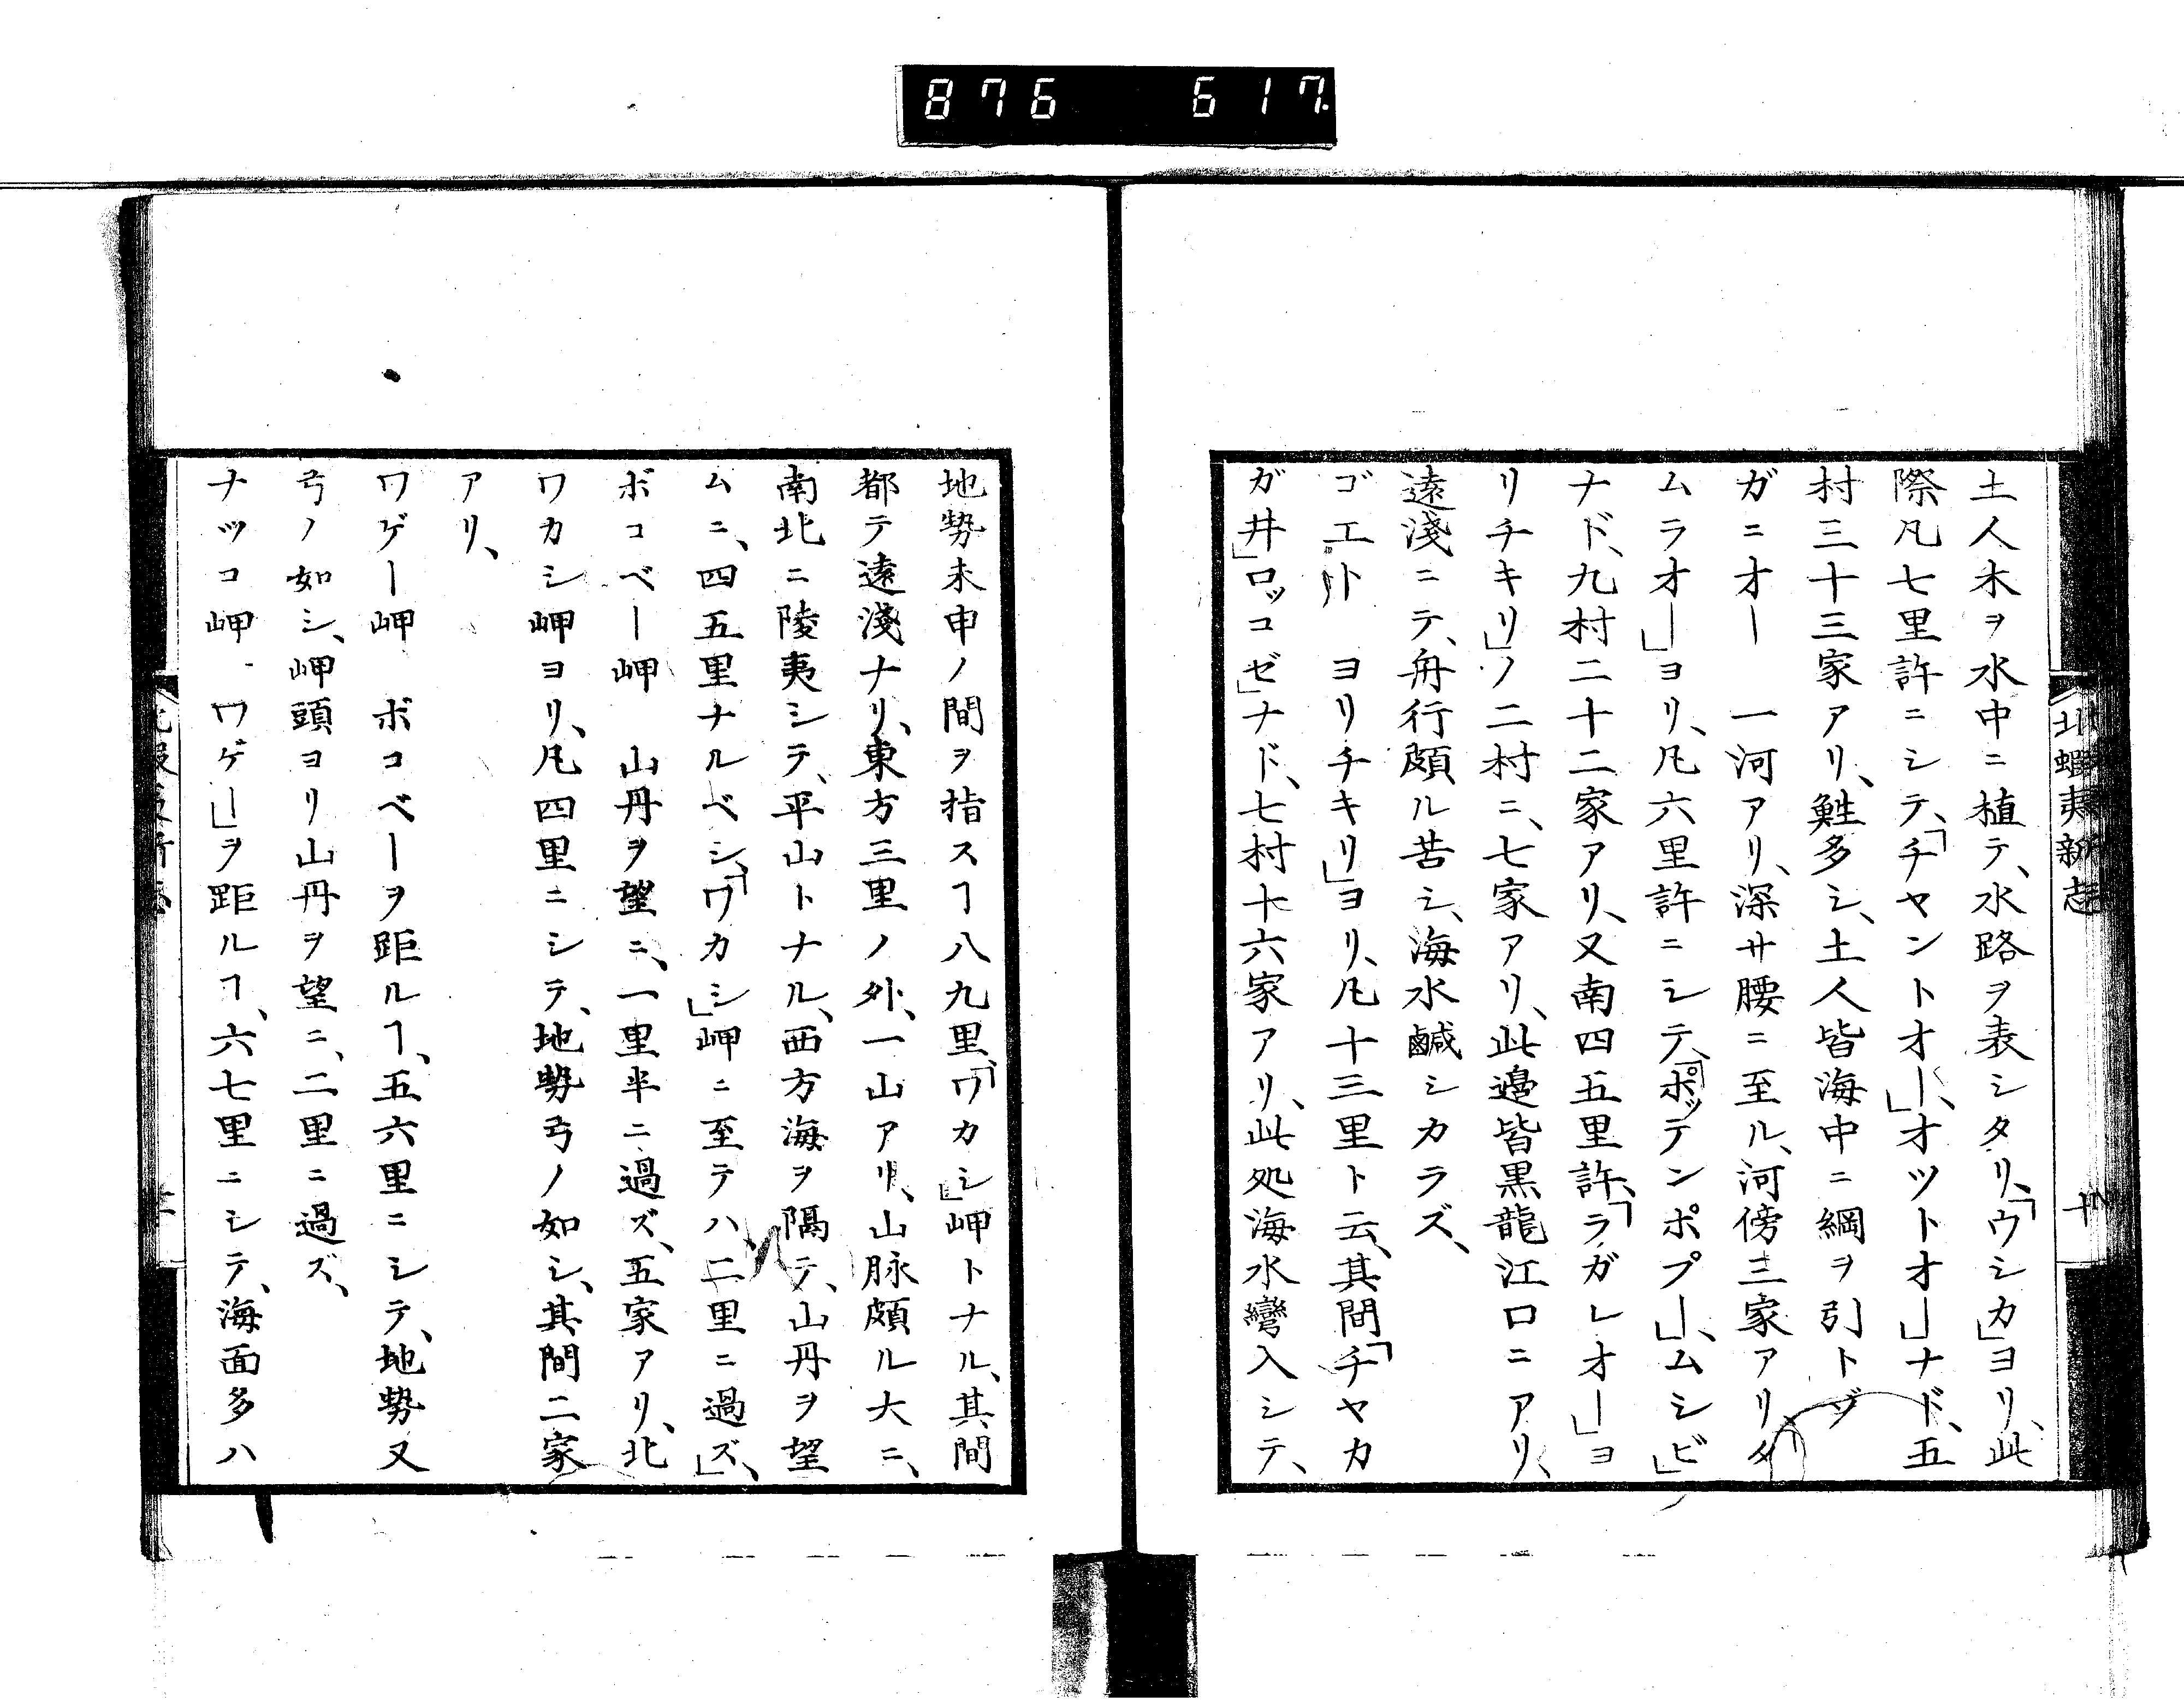 876 617
土人木ヲ水中ニ植テ、水路ヲ表シタリ、「ウシカ」ヨリ、此
際凡七里許ニシテ、「チヤントオー」、オツトオー」ナド、五
村三十三家アリ、鮏多シ、土人皆海中ニ綱ヲ引トゾ
ガニオー 一河アリ、深サ腰ニ至ル、河傍三家アリタ
ムラオー」ヨリ、凡六里許ニシテ、「ポッテンポプー」、ムシビ」
ナド、九村二十二家アリ、又南四五里許、「ラガレオー」ヨ
リチキリ」ノ二村ニ、七家アリ、此邉皆黒龍江口ニアリ、
遠淺ニテ、舟行頗ル苦シ、海水鹹シカラズ、
ゴエト ヨリチキリ」ヨリ、凡十三里ト云、其間「チヤカ
ガ井」ロッコゼ」ナド、七村十六家アリ、此処海水彎入シテ、
北蝦夷新志 十
地勢未申ノ間ヲ指スヿ八九里、「ワカシ」岬トナル、其間
都テ遠淺ナリ、東方三里ノ外、一山アリ、山脉頗ル大ニ、
南北ニ陵夷シテ、平山トナル、西方海ヲ隔テ、山丹ヲ望
ムニ、四五里ナルベシ、「ワカシ」岬ニ至テハ、二里ニ過ズ」、
ボコベー岬 山丹ヲ望ニ、一里半ニ過ズ、五家アリ、北
ワカシ岬ヨリ、凡四里ニシテ、地勢弓ノ如シ、其間二家
アリ、
ワゲー岬 ボコベーヲ距ルヿ、五六里ニシテ、地勢又
弓ノ如シ、岬頭ヨリ山丹ヲ望ニ、二里ニ過ズ、
ナッコ岬 ワゲー」ヲ距ルヿ、六七里ニシテ、海面多ハ